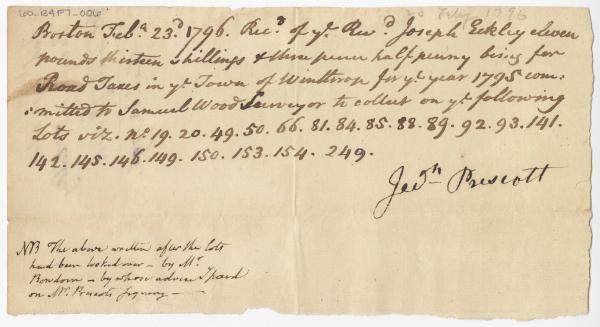 60-B4F7-006
23 Feby 1796
Boston Feb.a 23.d 1796. Rec.d of y.e Rev.d Joseph Eckley eleven
pounds thirteen shillings & three pence half penny being for
Road Taxes in y.e Town of Winthrop for y.e year 1795 com:
:mitted to Samuel Wood Surveyor to collect on y.e following
Lots viz. N.o 19. 20. 49. 50. 66. 81. 84. 85. 88. 89. 92. 93. 141.
142. 145. 146. 149. 150. 153. 154. 249.
Jed.h Prescott
NB The above written after the lots
had been looked over - by Mr.
Bowdoin - by whose advice I paid
on Mr. Prescots Inquiry -